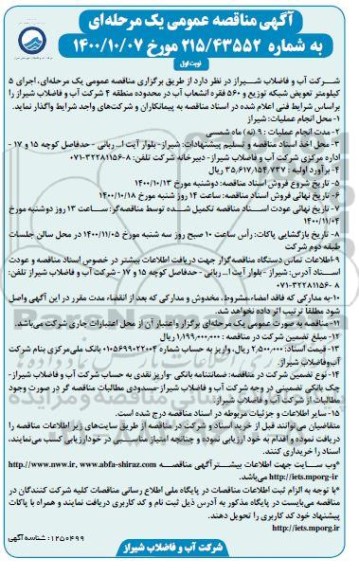 آگهی مناقصه عمومی یک مرحله‌ای
به شماره ۲۱۵/۴۳۵۵۲ مورخ ۱۴۰۰/۱۰/۰۷
نوبت اول
شرکت آب و فاضلاب شیراز در نظر دارد از طریق برگزاری مناقصه عمومی یک مرحله‌ای، اجرای ۵
کیلومتر تعویض شبکه توزیع و ۵۶۰ فقره انشعاب آب در محدوده منطقه ۴ شرکت آب و فاضلاب شیراز را
براساس شرایط فنی اعلام شده در اسناد مناقصه به پیمانکاران و شرکت‌های واجد شرایط واگذار نماید.
۱- محل انجام عملیات: شیراز
۲- مدت انجام عملیات: ۹ (نه) ماه شمسی
۳- محل اخذ اسناد مناقصه و تسلیم پیشنهادات: شیراز- بلوار آیت ا... ربانی - حدفاصل کوچه ۱۵ و ۱۷ -
اداره مرکزی شرکت آب و فاضلاب شیراز - دبیرخانه شرکت تلفن: ۸-۳۲۲۸۱۱۵۶-۰۷۱
۴- برآورد اولیه: ۳۵,۶۱۷,۱۵۴,۷۳۷ ریال
۵- تاریخ شروع فروش اسناد مناقصه: دوشنبه مورخ ۱۴۰۰/۱۰/۱۳
۶- تاریخ نهائی فروش اسناد مناقصه: ساعت ۱۴ روز شنبه مورخ ۱۴۰۰/۱۰/۱۸
۷- تاریخ نهائی عودت اسناد مناقصه تکمیل شده توسط مناقصه‌گر: ساعت ۱۳ روز دوشنبه مورخ
۱۴۰۰/۱۱/۰۴
۸- تاریخ بازگشایی پاکات: رأس ساعت ۱۰ صبح روز سه شنبه مورخ ۱۴۰۰/۱۱/۰۵ در محل سالن جلسات
طبقه دوم شرکت
۹- اطلاعات تماس دستگاه مناقصه گزار جهت دریافت اطلاعات بیشتر در خصوص اسناد مناقصه و عودت
اسناد آدرس: شیراز - بلوار آیت ا... ربانی - حدفاصل کوچه ۱۵ و ۱۷ - شرکت آب و فاضلاب شیراز تلفن:
۸-۳۲۲۸۱۱۵۶-۰۷۱
۱۰- به مدارکی که فاقد امضاء، مشروط، مخدوش و مدارکی که بعد از انقضاء مدت مقرر در این آگهی واصل
شود مطلقا ترتیب اثر داده نخواهد شد.
۱۱- مناقصه به صورت عمومی یک مرحله‌ای برگزار و اعتبار آن از محل اعتبارات جاری شرکت می‌باشد.
۱۲- مبلغ تضمین شرکت در مناقصه: ۱,۱۹۹,۰۰۰,۰۰۰ ریال
۱۳- قیمت اسناد: ۲,۵۰۰,۰۰۰ ریال، واریز به حساب شماره ۰۱۰۵۶۹۹۰۲۲۰۰۳ بانک ملی مرکزی بنام شرکت
آب و فاضلاب شیراز
۱۴- نوع تضمین شرکت در مناقصه: ضمانتنامه بانکی - واریز نقدی به حساب شرکت آب و فاضلاب شیراز-
چک بانکی تضمینی در وجه شرکت آب و فاضلاب شیراز- مسدودی مطالبات مناقصه گر (در صورت وجود
مطالبات از شرکت آب و فاضلاب شیراز)
۱۵- سایر اطلاعات و جزئیات مربوطه در اسناد مناقصه درج شده است.
متقاضیان می‌توانند قبل از خرید اسناد و شرکت در مناقصه از طریق سایت‌های زیر اطلاعات مناقصه را
دریافت نموده و اقدام به خود ارزیابی نموده و چنانچه امتیاز مناسبی در خودارزیابی کسب می‌نمایند،
اسناد را خریداری کنند.
*وب سایت جهت اطلاعات بیشتر آگهی مناقصه http://www.nww.ir, www.abfa-shiraz.com
http://iets.mporg-ir می‌باشد.
*با توجه به الزام ثبت اطلاعات مناقصات در پایگاه ملی اطلاع رسانی مناقصات کلیه شرکت کنندگان در
مناقصه می‌بایست در پایگاه مذکور به آدرس ذیل ثبت نام و کد کاربری دریافت نمایند و همراه با پاکات
پیشنهاد خود کد کاربری را تحویل دهند.
http://iets.mporg.ir
شناسه آگهی: ۱۲۵۰۴۹۹
شرکت آب و فاضلاب شیراز